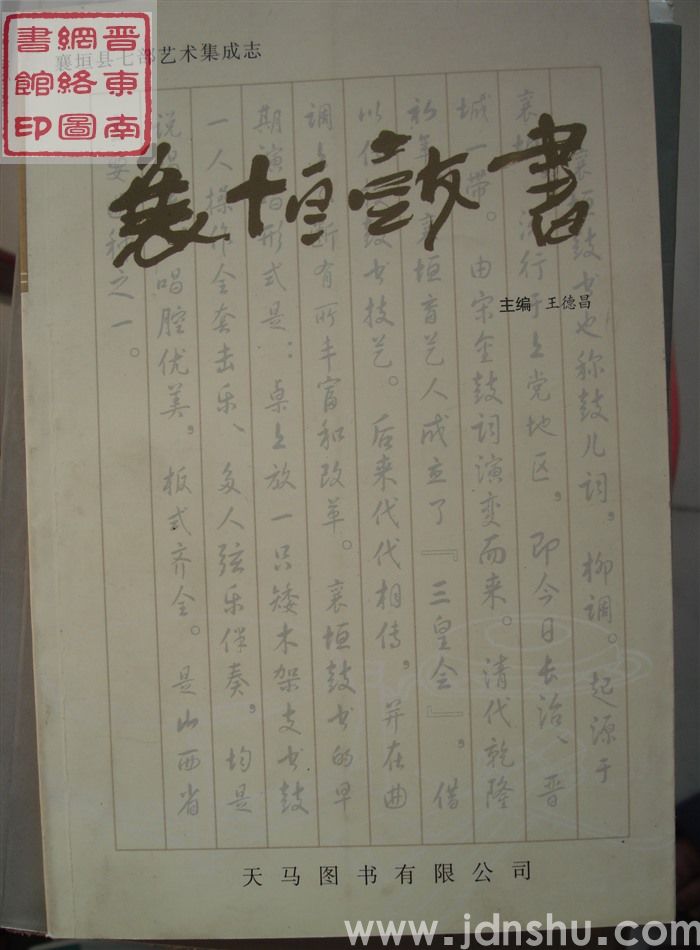 晋東南
網絡圖
書館印
襄垣县七部艺术集成志
襄垣鼓書
主编 王德昌
襄垣鼓书也称鼓儿词，柳调。起源于
襄垣，流行于上党地区，即今日长治、晋
城一带。由宋金鼓词演变而来。清代乾隆
初年，襄垣盲艺人成立了『三皇会』，借
以传鼓书技艺。后来代代相传，并在曲
调上断有所丰富和改革。襄垣鼓书的早
期演唱形式是：桌上放一只矮木架支书鼓
一人操作全套击乐、多人弦乐伴奏。均是
说唱腔优美，板式齐全。是山西省
要种之一。
天马图书有限公司
www.jdnshu.com